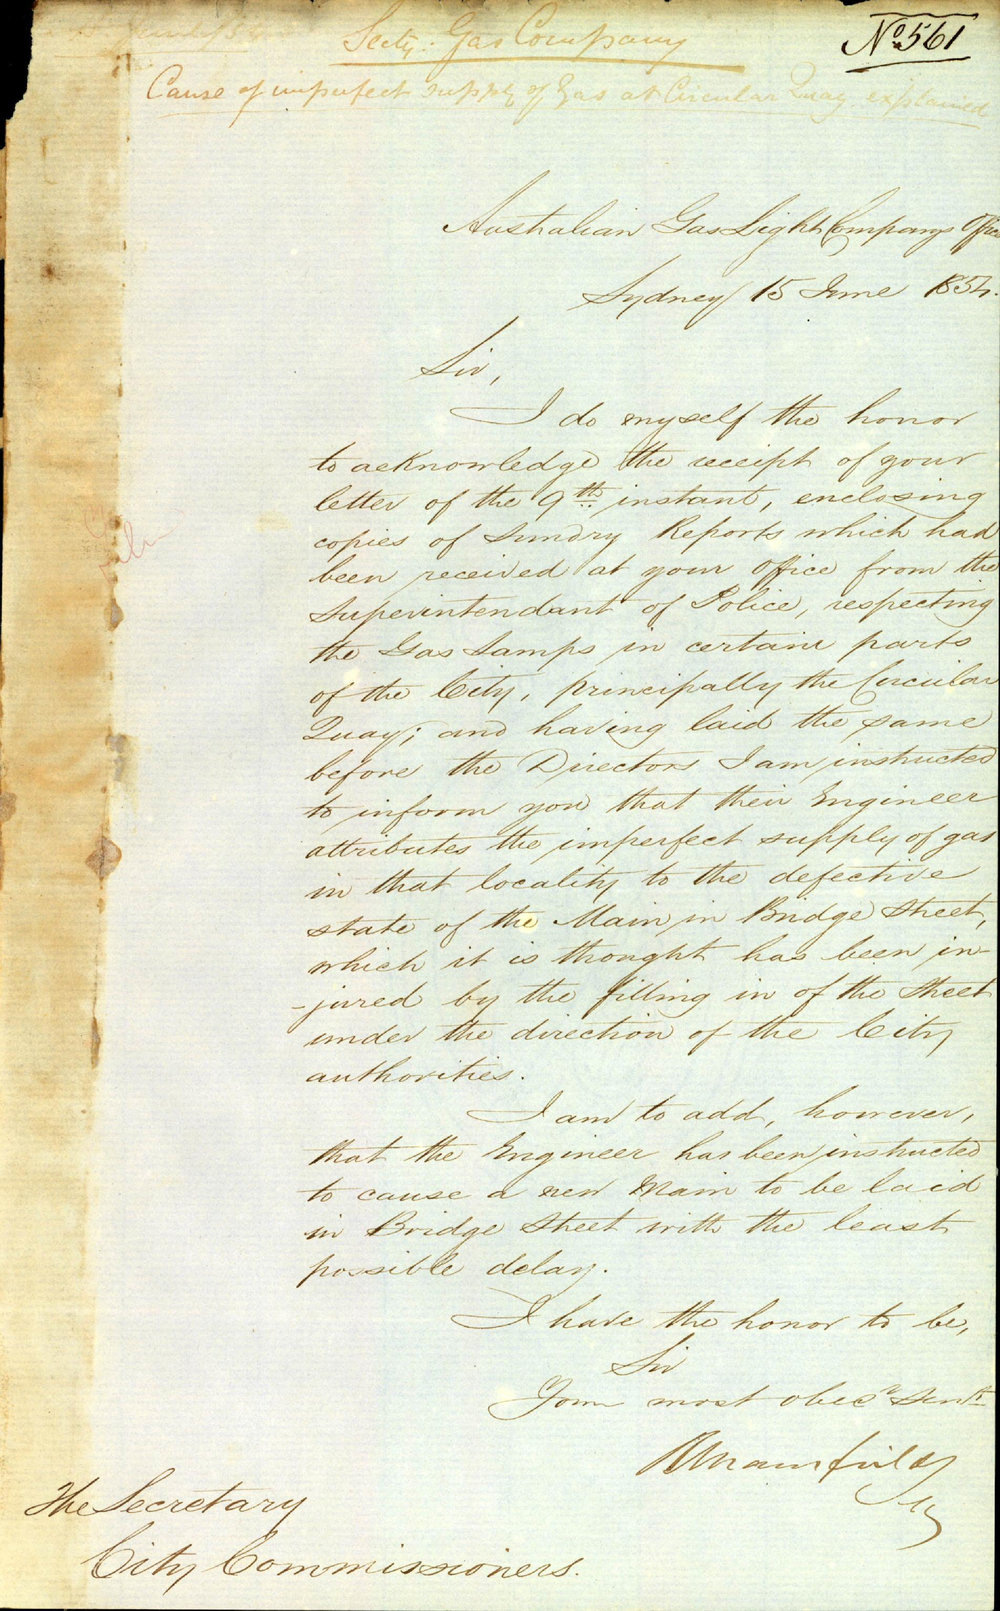 Secty: Gas Company
No. 561
Cause of imperfect supply of Gas at Circular Quay explained
Australian Gas Light Company's Office
Sydney 15 June 1854.
Sir,
I do myself the honor
to acknowledge the receipt of your
letter of the 9th instant, enclosing
copies of Sundry Reports which had
been received at your office from the
Superintendant of Police, respecting
the Gas Lamps in certain parts
of the City, principally the Circular
Quay; and having laid the same
before the Directors I am instructed
to inform you that their Engineer
attributes the imperfect supply of gas
in that locality to the defective
state of the Main in Bridge Street,
which it is thought has been in-
-jured by the filling in of the Street
under the direction of the City
authorities.
I am to add, however,
that the Engineer has been instructed
to cause a new Main to be laid
in Bridge Street with the least
possible delay.
I have the honor to be,
Sir
Your most obedt Servt
R Mansfield
Sy
The Secretary
City Commissioners.